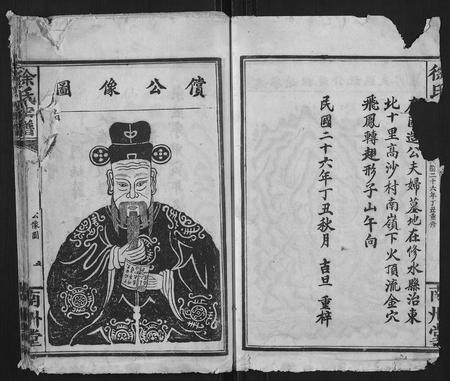 徐氏
右圖造公夫婦墓地在修水縣治東
北十里高沙村南嶺下火頂流金穴
飛鳳轉翅形子山午向
民國二十六年丁丑秋月 吉旦 重梓
民國二十六年丁丑重修
南州堂
償公像圖
徐氏宗譜
公像圖
五
南州堂